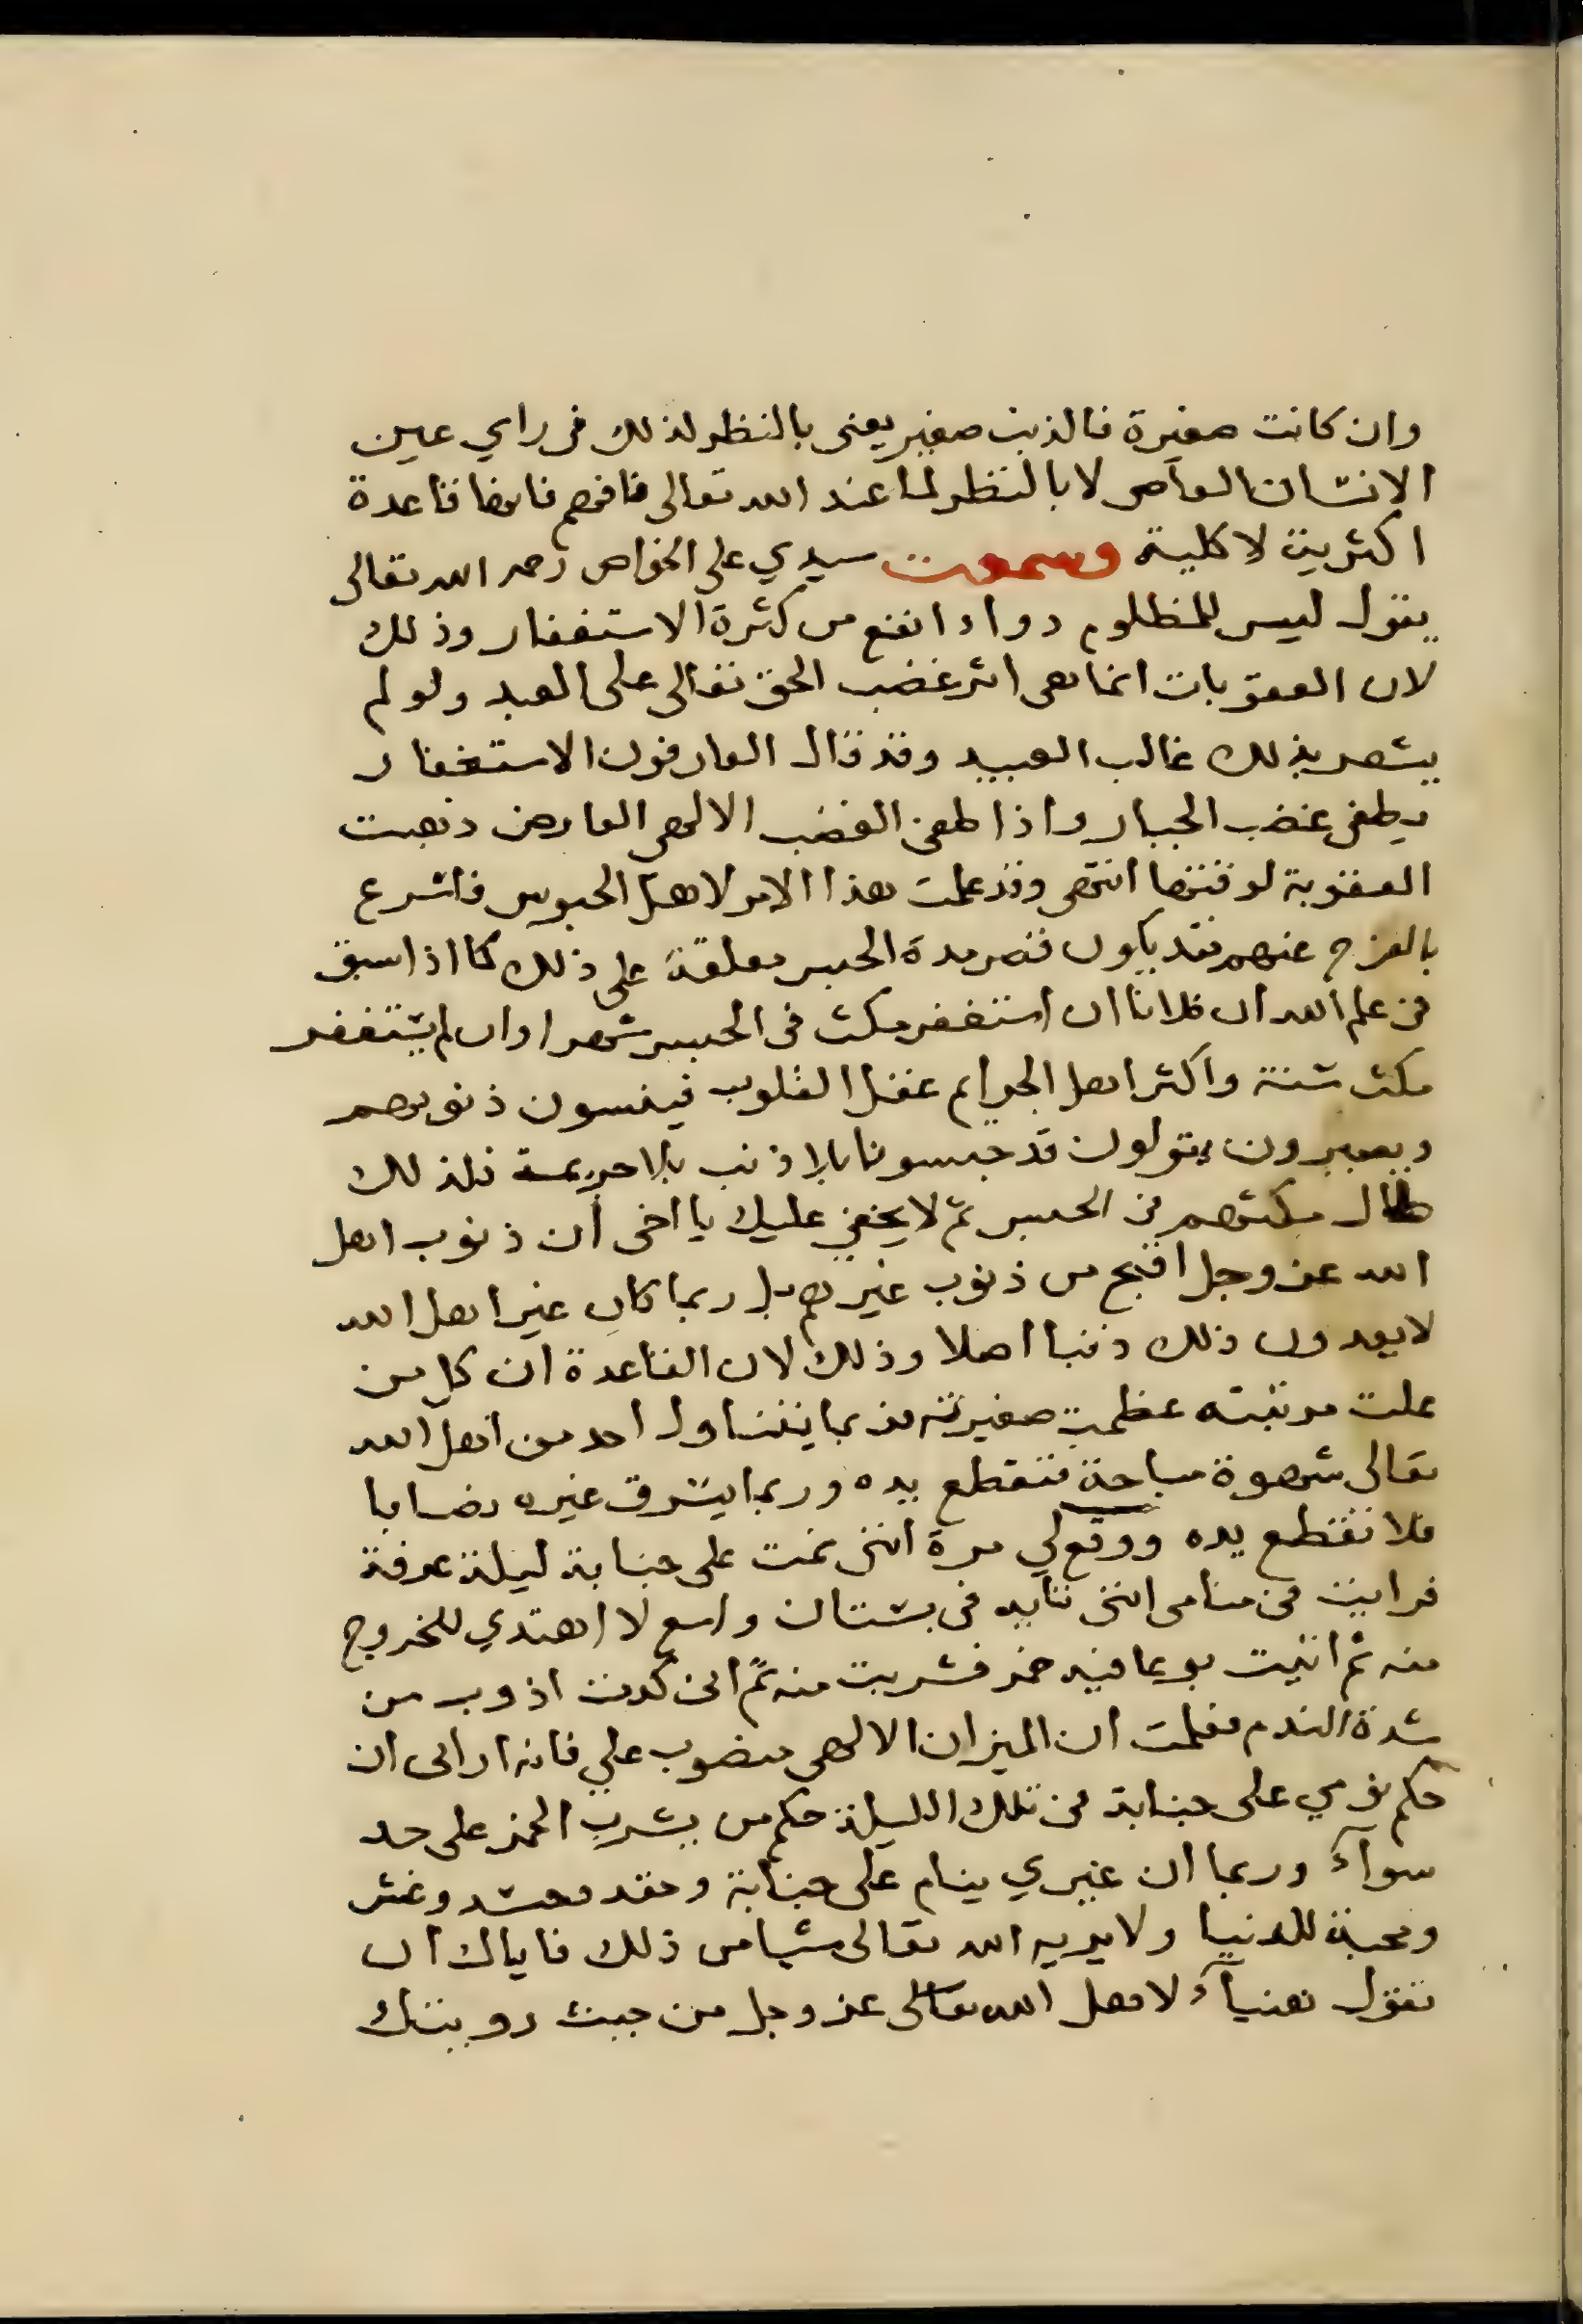 وان كانت صغيرة فالذنب صغير يعنى بالنظر لذلك فى راي عين
الانسان العاصى لا بالنظر لما عند الله تعالى فافهم فانها قاعدة
اكثرية لا كلية وسمعت سيدي على الخواص رحمه الله تعالى
يقول ليس للمظلوم دواء انفع من كثرة الاستغفار وذلك
لان العقوبات انما هى اثر غضب الحق تعالى على العبد ولو لم
يشعر بذلك غالب العبيد وقد قال العارفون الاستغفار
يطفى غضب الجبار واذا طفى الغضب الالهى العارض ذهبت
العقوبة لوقتها انتهى وقد علمت هذا الامر لاهل الحبوس فاشرع
بالفرج عنهم فقد يكون قصر مدة الحبس معلقة على ذلك كما اذا سبق
فى علم الله ان فلانا ان استغفر مكث فى الحبس شهرا وان لم يستغفر
مكث سنة واكثر اهل الجرايم غفل القلوب فينسون ذنوبهم
ويصيرون يقولون قد حبسونا بلا ذنب بلا جريمة فلذلك
طال مكثهم فى الحبس ثم لا يخفى عليك يا اخى ان ذنوب اهل
الله عز وجل اقبح من ذنوب غيرهم بل ربما كان غير اهل الله
لا يعدون ذلك ذنبا اصلا وذلك لان القاعدة ان كل من
علت مرتبته عظمت صغيرته فربما يتناول احد من اهل الله
تعالى شهوة مباحة فتقطع يده وربما يسرق غيره نصابا
فلا تقطع يده ووقع لي مرة اننى نمت على جنابة ليلة عرفة
فرايت فى منامى اننى تايه فى بستان واسع لا اهتدي للخروج
منه ثم اتيت بوعا فيه خمر فشربت منه ثم انى كدت اذوب من
شدة الندم فعلمت ان الميزان الالهى منصوب علي فانه ارانى ان
حكم نومي على جنابة فى تلك الليلة حكم من يشرب الخمر على حد
سوآء وربما ان غيري ينام على جنابة وحقد وحسد وغش
ومحبة للدنيا ولا يريه الله تعالى شيا من ذلك فاياك ان
تقول هنيآء لاهل الله تعالى عز وجل من حيث رويتك